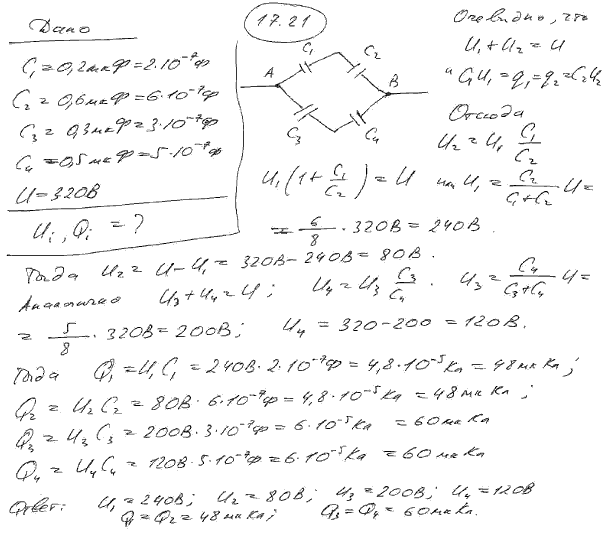 17.21
Дано
C₁=0,2мкФ=2·10⁻⁷Ф
C₂=0,6мкФ=6·10⁻⁷Ф
C₃=0,3мкФ=3·10⁻⁷Ф
C₄=0,5мкФ=5·10⁻⁷Ф
U=320В
Uᵢ, Qᵢ =?
C₁ C₂
A B
C₃ C₄
Очевидно, что
U₁+U₂=U
и C₁U₁=q₁=q₂=C₂U₂
Отсюда
U₂=U₁ C₁/C₂
U₁(1+C₁/C₂)=U или U₁=C₂/(C₁+C₂) U=
=6/8·320В=240В.
Тогда U₂=U-U₁=320В-240В=80В.
Аналогично U₃+U₄=U; U₄=U₃ C₃/C₄. U₃=C₄/(C₃+C₄) U=
=5/8·320В=200В; U₄=320-200=120В.
Тогда Q₁=U₁C₁=240В·2·10⁻⁷Ф=4,8·10⁻⁵Кл=48мкКл;
Q₂=U₂C₂=80В·6·10⁻⁷Ф=4,8·10⁻⁵Кл=48мкКл;
Q₃=U₃C₃=200В·3·10⁻⁷Ф=6·10⁻⁵Кл=60мкКл
Q₄=U₄C₄=120В·5·10⁻⁷Ф=6·10⁻⁵Кл=60мкКл
Ответ: U₁=240В; U₂=80В; U₃=200В; U₄=120В
Q₁=Q₂=48мкКл; Q₃=Q₄=60мкКл.